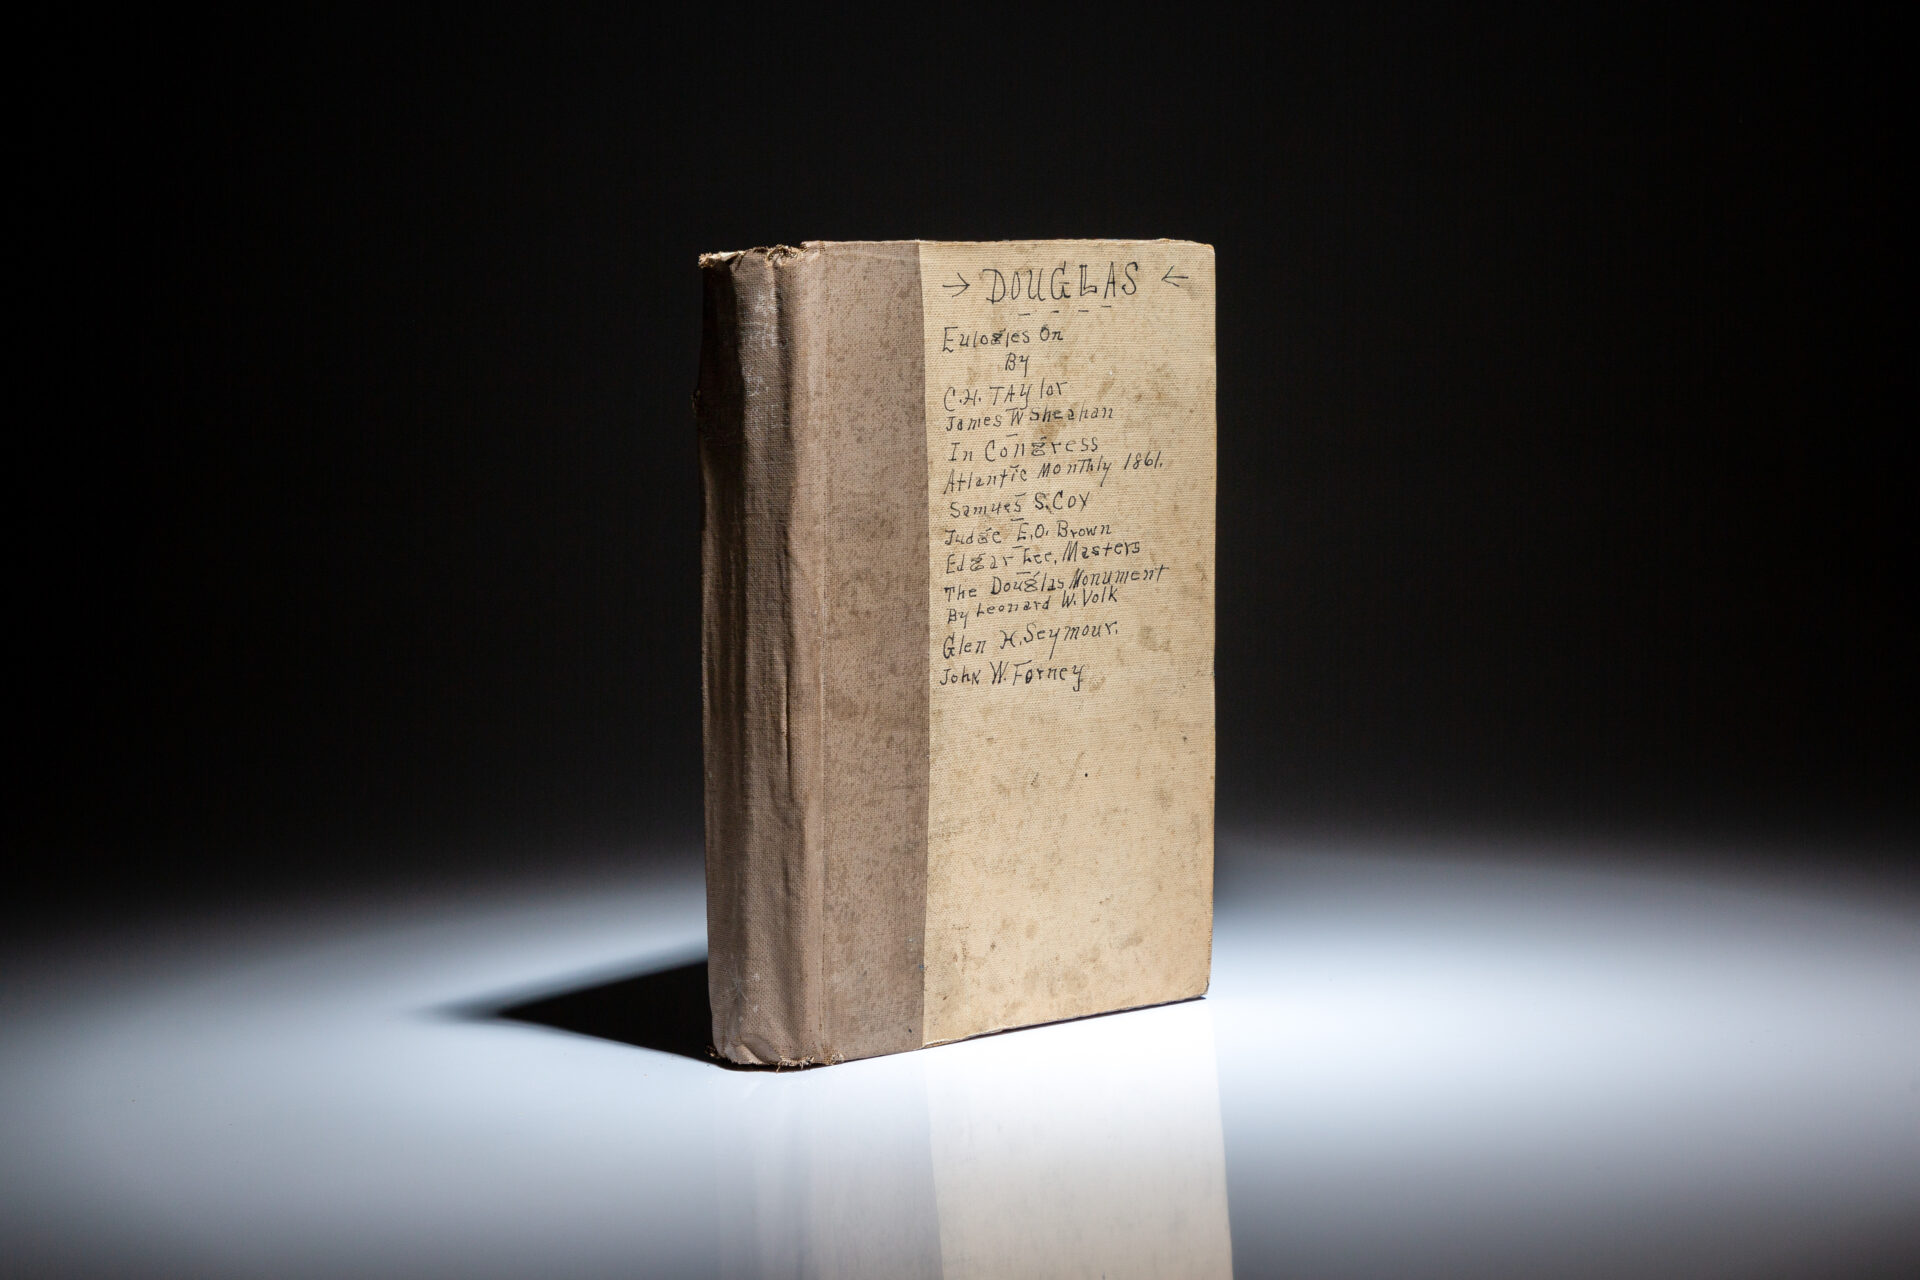 → DOUGLAS ←
Eulogies On
By
C.H. TAylor
James W Sheahan
In Congress
Atlantic Monthly 1861.
Samues S. Cox
Judge E.O. Brown
Edgar Lee, Masters
The Douglas Monument
By Leonard W. Volk
Glen H. Seymour.
John W. Forney